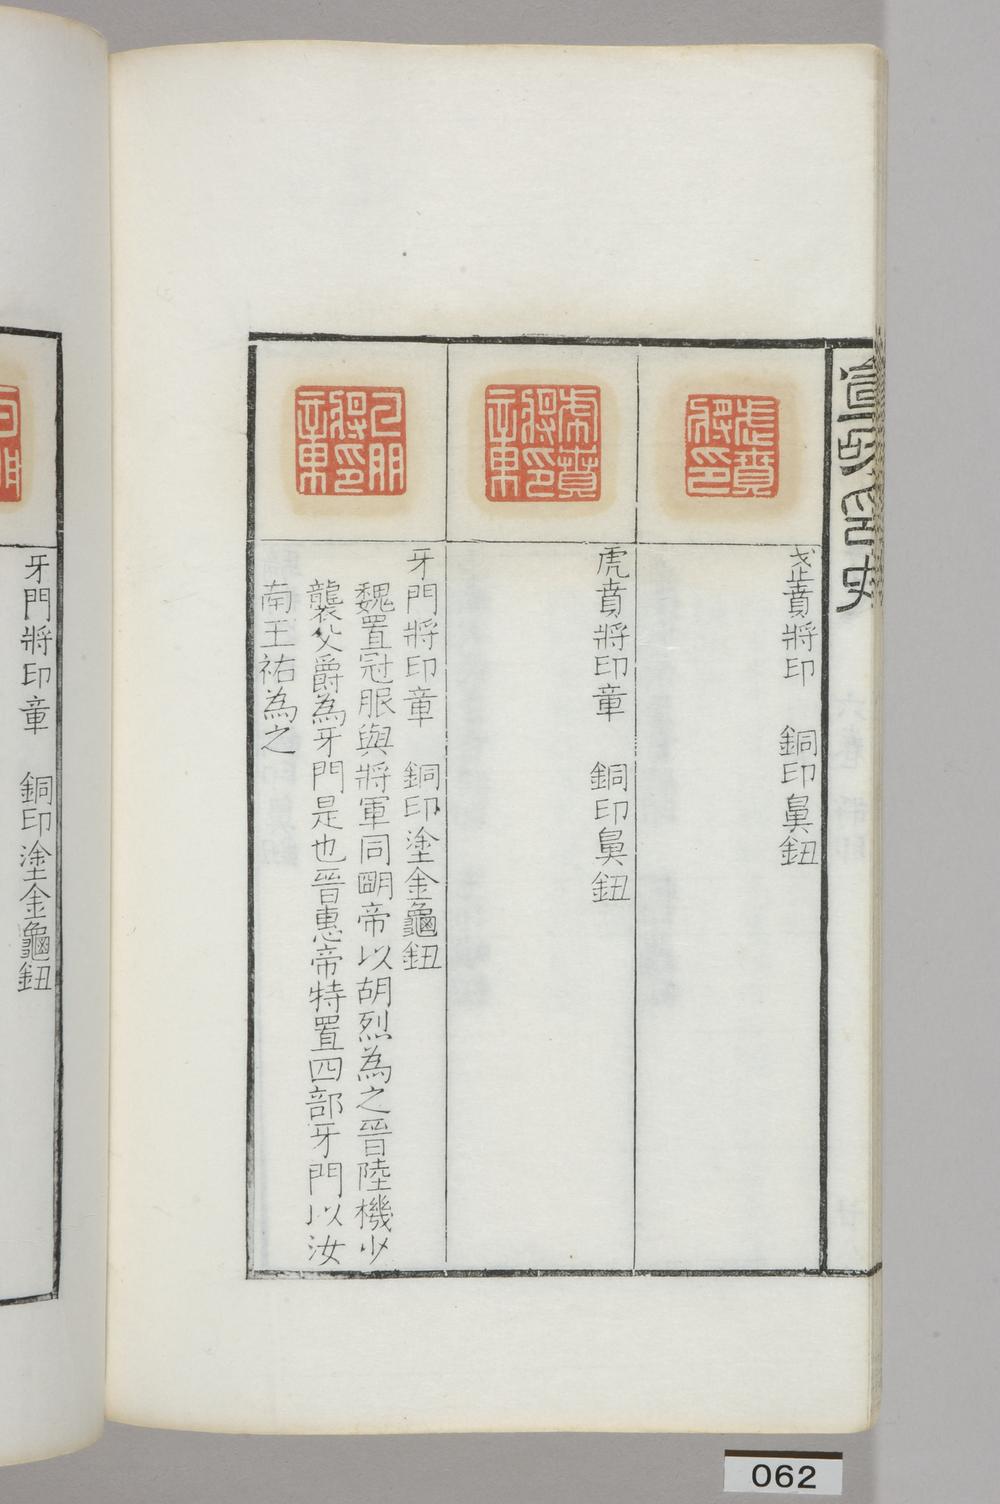 宣和印史
武賁將印　銅印鼻鈕
虎賁將印章　銅印鼻鈕
牙門將印章　銅印塗金龜鈕
魏置冠服與將軍同朙帝以胡烈為之晉陸機少
襲父爵為牙門是也晉惠帝特置四部牙門以汝
南王祐為之
牙門將印章　銅印塗金龜鈕
062